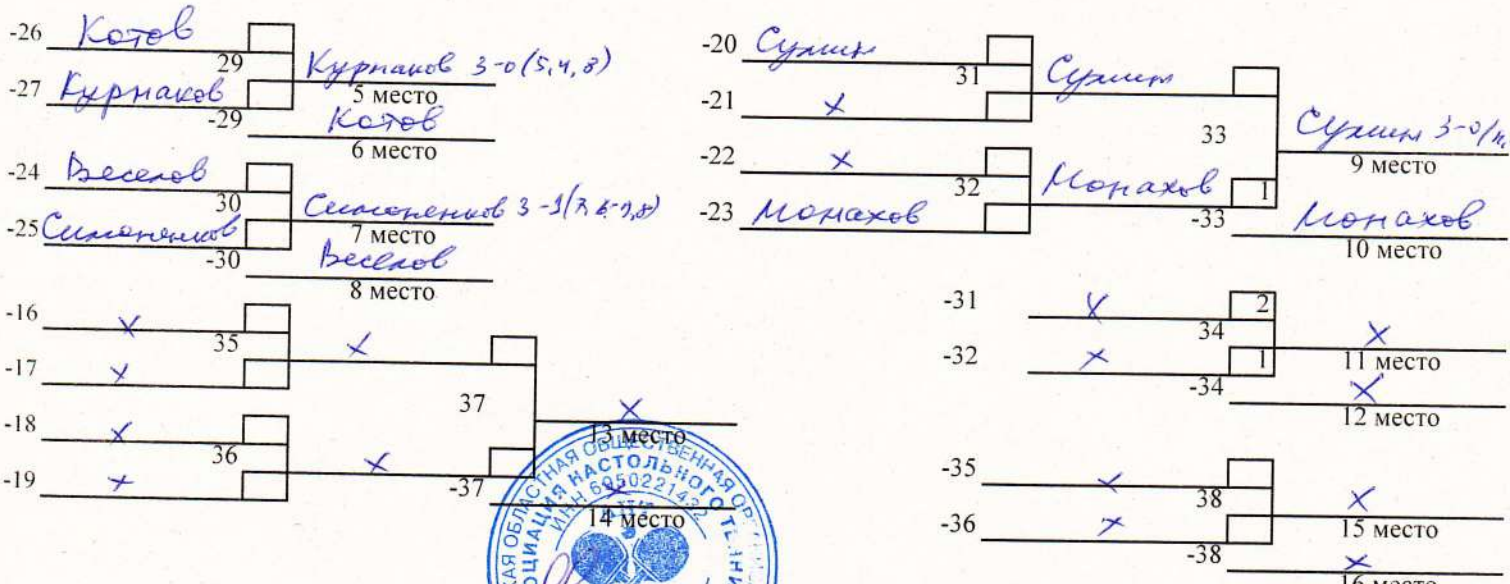 -26 Котов
29
-27 Курпаков
Курпаков 3-0 (5,4,8)
5 место
-29 Котов
6 место
-24 Веселов
30
-25 Симоненков
Симоненков 3-1
7 место
-30 Веселов
8 место
-16 ×
35
-17 ×
×
-18 ×
36
-19 ×
×
37
×
13 место
-37
14 место
-20 Сухин
31
-21 ×
Сухин
-22 ×
32
-23 Монахов
Монахов 1
33
Сухин 3-0
9 место
-33 Монахов
10 место
-31 × 2
34
-32 × 1
×
11 место
-34 ×
12 место
-35 ×
38
-36 ×
×
15 место
-38 ×
16 место
ОБЩЕСТВЕННАЯ
НАСТОЛЬНОГО
ИНН 6950221432